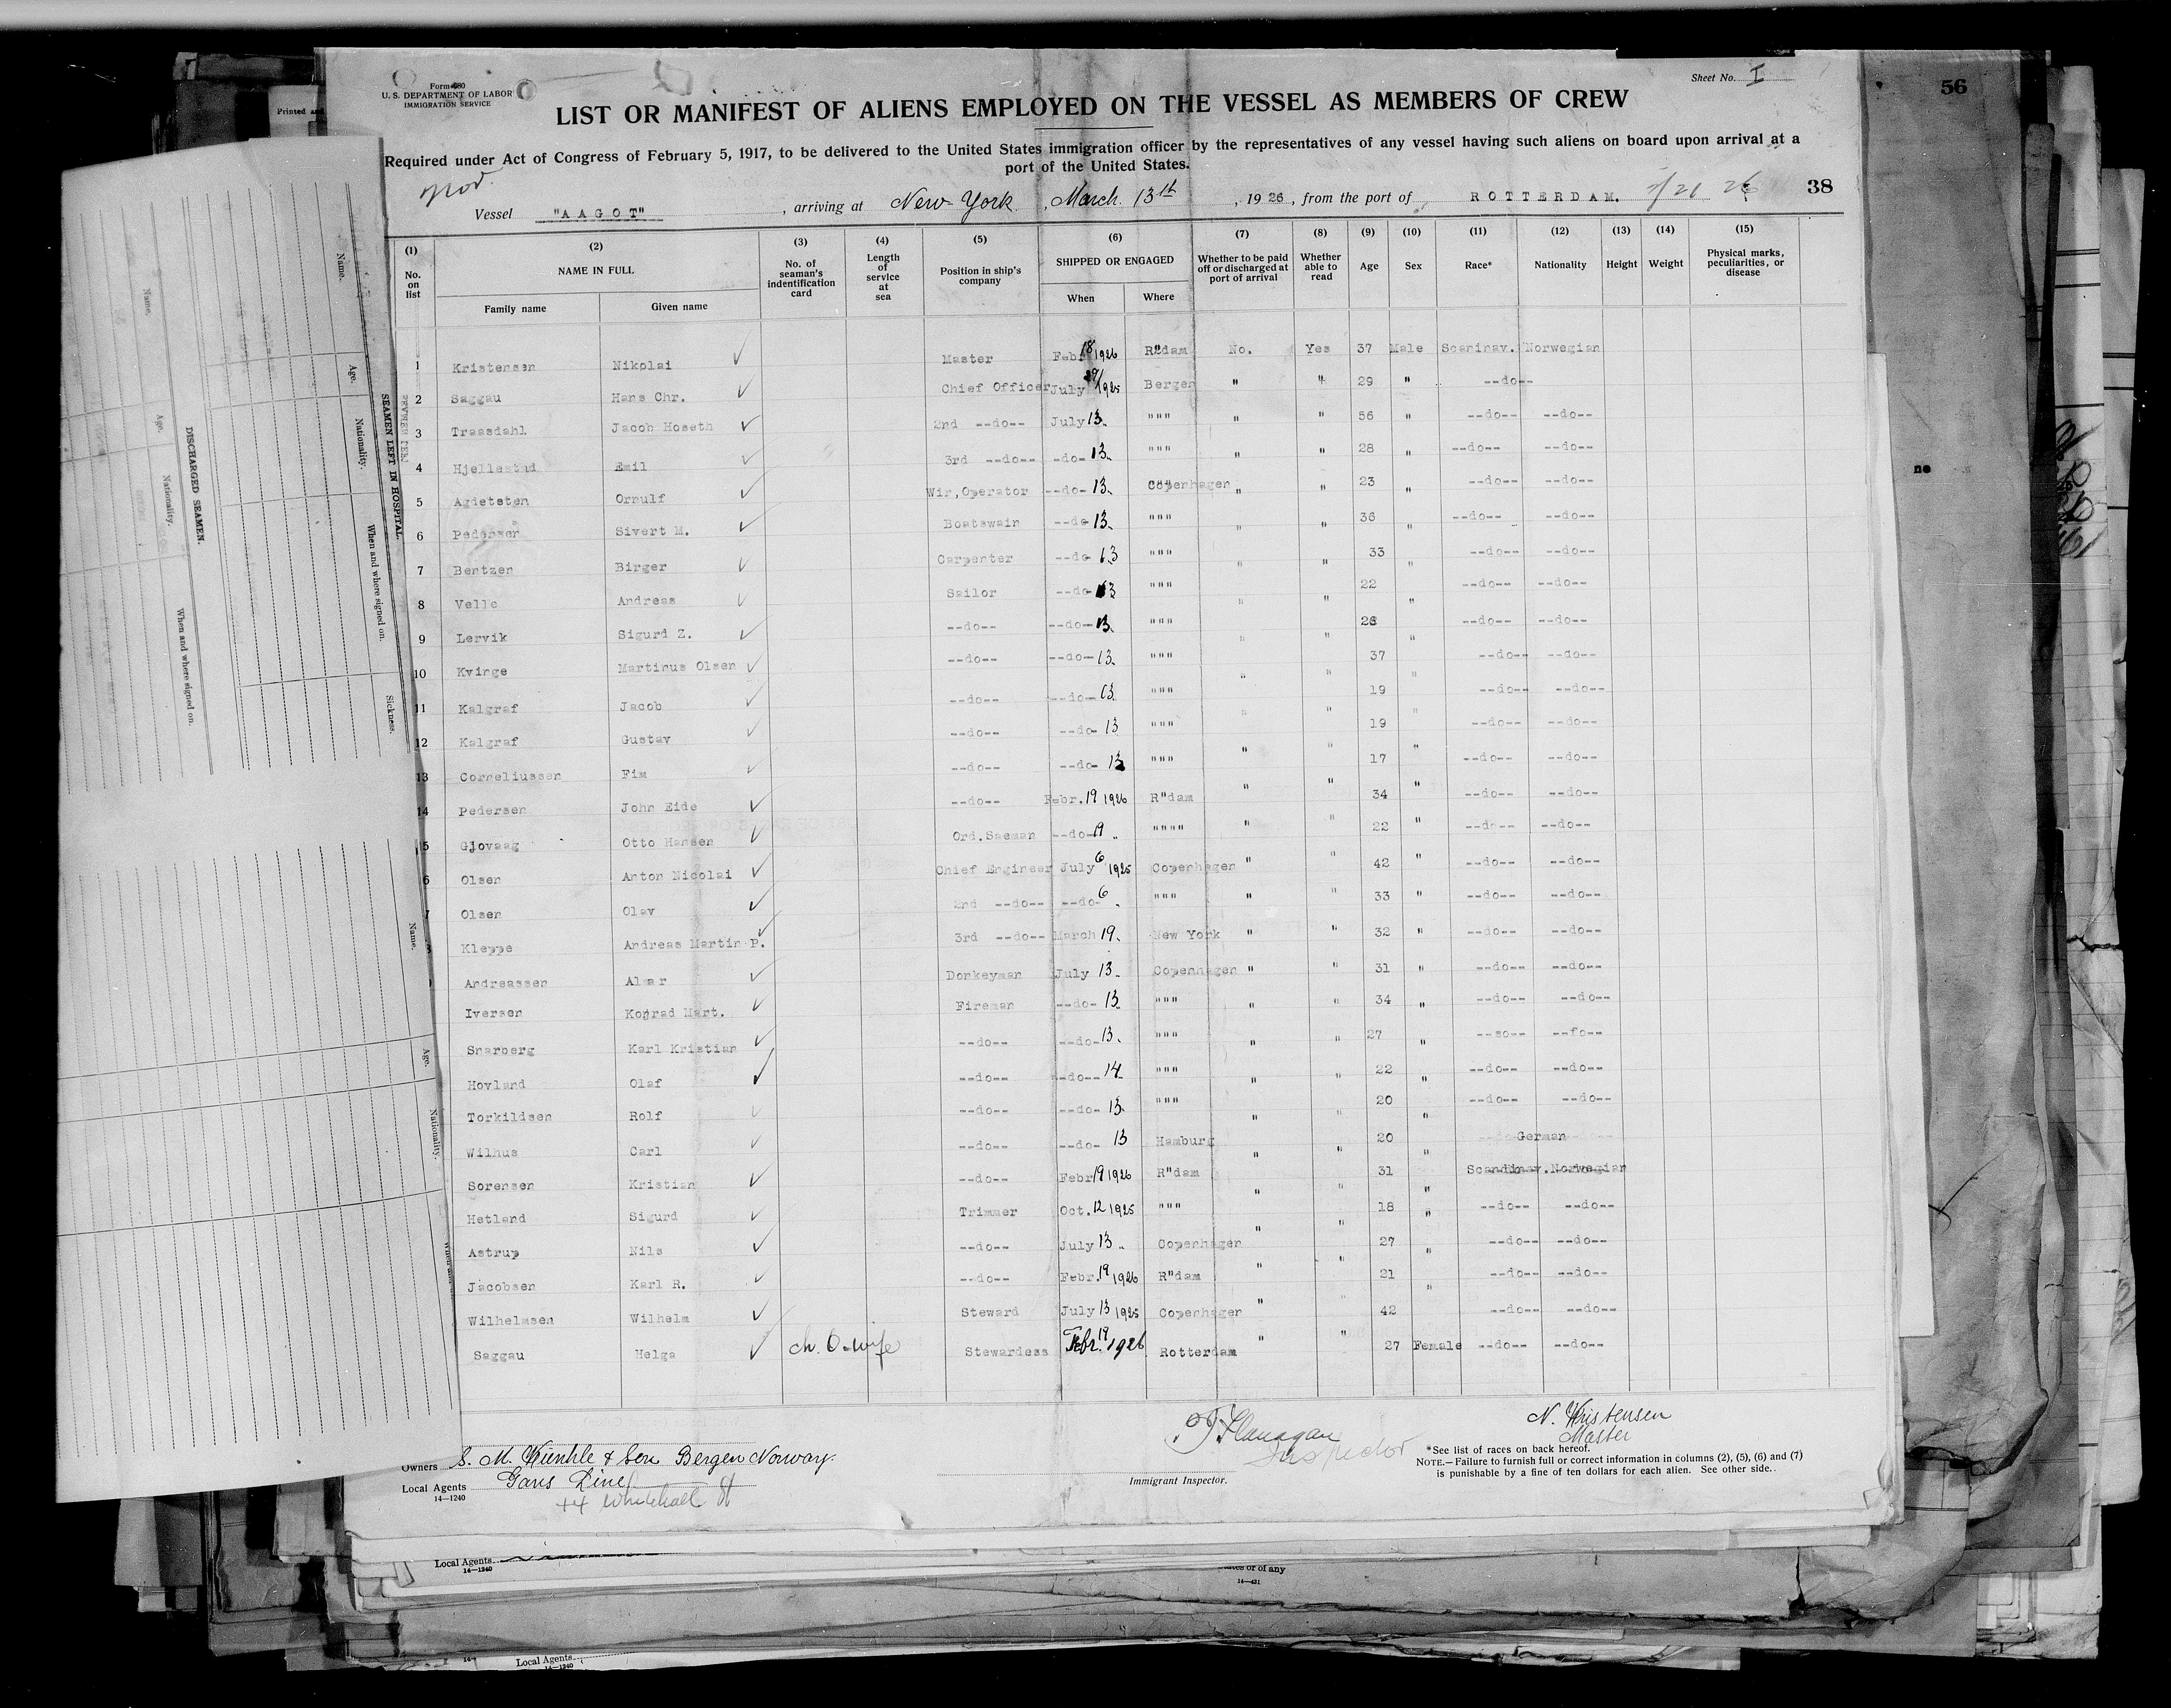 Form 680
U. S. DEPARTMENT OF LABOR
IMMIGRATION SERVICE
Sheet No. I
56
Printed and
LIST OR MANIFEST OF ALIENS EMPLOYED ON THE VESSEL AS MEMBERS OF CREW
Required under Act of Congress of February 5, 1917, to be delivered to the United States immigration officer by the representatives of any vessel having such aliens on board upon arrival at a
port of the United States.
nor.
Vessel "AAGOT", arriving at New York, March 13th, 1926, from the port of ROTTERDAM. 38
(1) (2) (3) (4) (5) (6) (7) (8) (9) (10) (11) (12) (13) (14) (15)
No. on list NAME IN FULL Family name Given name No. of seaman's indentification card Length of service at sea Position in ship's company SHIPPED OR ENGAGED When Where Whether to be paid off or discharged at port of arrival Whether able to read Age Sex Race* Nationality Height Weight Physical marks, peculiarities, or disease
1 Kristensen Nikolai Master Feb. 18 1926 R"dam No. Yes 37 Male Scaninav. Norwegian
2 Saggau Hans Chr. Chief Officer July 29/1925 Bergen " " 29 " --do--
3 Traasdahl Jacob Hoseth 2nd --do-- July 13. """ " " 56 " --do-- --do--
4 Hjellestad Emil 3rd --do-- -do- 13. """ " " 28 " --do-- --do--
5 Agdetsten Ornulf Wir,Operator --do- 13. Copenhagen " " 23 " --do-- --do--
6 Pedersen Sivert M. Boatswain --do- 13. """ " " 36 " --do-- --do--
7 Bentzen Birger Carpenter --do- 13 """ " " 33 " --do-- --do--
8 Velle Andreas Sailor --do- 13 """ " " 22 " --do-- --do--
9 Lervik Sigurd Z. --do-- --do- 13. """ " " 26 " --do-- --do--
10 Kvinge Martinus Olsen --do-- --do- 13. """ " " 37 " --do-- --do--
11 Kalgraf Jacob --do-- --do- 13. """ " " 19 " --do-- --do--
12 Kalgraf Gustav --do-- --do- 13 """ " " 19 " --do-- --do--
13 Corneliussen Fim --do-- --do- 13 """ " " 17 " --do-- --do--
14 Pedersen John Eide --do-- Febr. 19 1926 R"dam " " 34 " --do-- --do--
5 Gjovaag Otto Hansen Ord.Saeman --do- 19 . """" " " 22 " --do-- --do--
6 Olsen Anton Nicolai Chief Engineer July 6 1925 Copenhagen " " 42 " --do-- --do--
7 Olsen Olav 2nd --do-- --do- 6 . """ " " 33 " --do-- --do--
Kleppe Andreas Martin P. 3rd --do-- March 19. New York " " 32 " --do-- --do--
Andreassen Almar Donkeyman July 13. Copenhagen " " 31 " --do-- --do--
Iversen Konrad Mart. Fireman --do- 13. """ " " 34 " --do-- --do--
Snarberg Karl Kristian --do-- --do- 13. """ " " 27 " --so-- --fo--
Hovland Olaf --do-- --do-- 14. """ " " 22 " --do-- --do--
Torkildsen Rolf --do-- --do- 13. """ " " 20 " --do-- --do--
Wilhus Carl --do-- --do- 13 Hamburg " " 20 " German
Sorensen Kristian --do-- Febr 19 1926 R"dam " " 31 " Scandinav. Norwegian
Hetland Sigurd Trimmer Oct. 12 1925 """ " " 18 " --do-- --do--
Astrup Nils --do-- July 13 .. Copenhagen " " 27 " --do-- --do--
Jacobsen Karl R. --do-- Febr. 19 1926 R"dam " " 21 " --do-- --do--
Wilhelmsen Wilhelm Steward July 13 1925 Copenhagen " " 42 --do-- --do--
Saggau Helga ch. O. wife Stewardess Febr. 19 1926 Rotterdam " " 27 Female --do-- --do--
Flanagan
Inspector
Immigrant Inspector.
N. Kristensen
Master
Owners S. M. Kuehle & Son Bergen Norway.
Local Agents Gans Line
44 Whitehall St
14—1240
*See list of races on back hereof.
NOTE.—Failure to furnish full or correct information in columns (2), (5), (6) and (7)
is punishable by a fine of ten dollars for each alien. See other side.
SEAMEN LEFT IN HOSPITAL.
Name. Age. Nationality. When and where signed on. Sickness.
DISCHARGED SEAMEN.
Name. Age. Nationality. When and where signed on.
Name. Age. Nationality.
ne
Local Agents
14—1240
14—431
Local Agents
14—1240